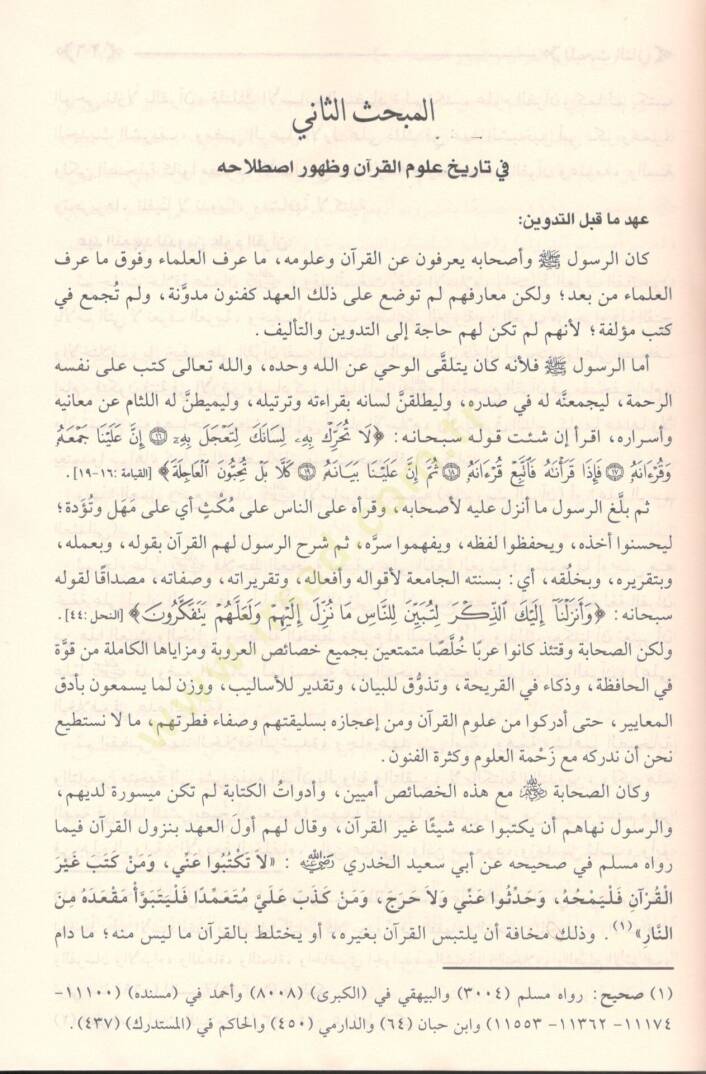 المبحث الثاني
في تاريخ علوم القرآن وظهور اصطلاحه
عهد ما قبل التدوين:
كان الرسول ﷺ وأصحابه يعرفون عن القرآن وعلومه، ما عرف العلماء وفوق ما عرف
العلماء من بعد؛ ولكن معارفهم لم توضع على ذلك العهد كفنون مدوَّنة، ولم تُجمع في
كتب مؤلفة؛ لأنهم لم تكن لهم حاجة إلى التدوين والتأليف.
أما الرسول ﷺ فلأنه كان يتلقَّى الوحي عن الله وحده، والله تعالى كتب على نفسه
الرحمة، ليجمعنَّه له في صدره، وليطلقنَّ لسانه بقراءته وترتيله، وليميطنَّ له اللثام عن معانيه
وأسراره، اقرأ إن شئت قوله سبحانه: ﴿لَا تُحَرِّكْ بِهِۦ لِسَانَكَ لِتَعْجَلَ بِهِۦٓ ۝١٦ إِنَّ عَلَيْنَا جَمْعَهُۥ
وَقُرْءَانَهُۥ ۝١٧ فَإِذَا قَرَأْنَٰهُ فَٱتَّبِعْ قُرْءَانَهُۥ ۝١٨ ثُمَّ إِنَّ عَلَيْنَا بَيَانَهُۥ ۝١٩ كَلَّا بَلْ تُحِبُّونَ ٱلْعَاجِلَةَ﴾ [القيامة: ١٦-١٩].
ثم بلَّغ الرسول ما أنزل عليه لأصحابه، وقرأه على الناس على مُكْثٍ أي على مَهَل وتُؤَدة؛
ليحسنوا أخذه، ويحفظوا لفظه، ويفهموا سرَّه، ثم شرح الرسول لهم القرآن بقوله، وبعمله،
وبتقريره، وبخلُقه، أي: بسنته الجامعة لأقواله وأفعاله، وتقريراته، وصفاته، مصداقًا لقوله
سبحانه: ﴿وَأَنزَلْنَآ إِلَيْكَ ٱلذِّكْرَ لِتُبَيِّنَ لِلنَّاسِ مَا نُزِّلَ إِلَيْهِمْ وَلَعَلَّهُمْ يَتَفَكَّرُونَ﴾ [النحل: ٤٤].
ولكن الصحابة وقتئذ كانوا عربًا خُلَّصًا متمتعين بجميع خصائص العروبة ومزاياها الكاملة من قوَّة
في الحافظة، وذكاء في القريحة، وتذوُّق للبيان، وتقدير للأساليب، ووزن لما يسمعون بأدق
المعايير، حتى أدركوا من علوم القرآن ومن إعجازه بسليقتهم وصفاء فطرتهم، ما لا نستطيع
نحن أن ندركه مع زَحْمة العلوم وكثرة الفنون.
وكان الصحابة ﷺ مع هذه الخصائص أميين، وأدواتُ الكتابة لم تكن ميسورة لديهم،
والرسول نهاهم أن يكتبوا عنه شيئًا غير القرآن، وقال لهم أولَ العهد بنزول القرآن فيما
رواه مسلم في صحيحه عن أبي سعيد الخدري رضي الله عنه : «لاَ تَكْتُبُوا عَنِّي، وَمَنْ كَتَبَ غَيْرَ
الْقُرْآنِ فَلْيَمْحُهُ، وَحَدِّثُوا عَنِّي وَلاَ حَرَجَ، وَمَنْ كَذَبَ عَلَيَّ مُتَعَمِّدًا فَلْيَتَبَوَّأْ مَقْعَدَهُ مِنَ
النَّارِ»(١). وذلك مخافة أن يلتبس القرآن بغيره، أو يختلط بالقرآن ما ليس منه؛ ما دام
(١) صحيح: رواه مسلم (٣٠٠٤) والبيهقي في (الكبرى) (٨٠٠٨) وأحمد في (مسنده) (١١١٠٠-
١١١٧٤- ١١٣٦٢- ١١٥٥٣) وابن حبان (٦٤) والدارمي (٤٥٠) والحاكم في (المستدرك) (٤٣٧).